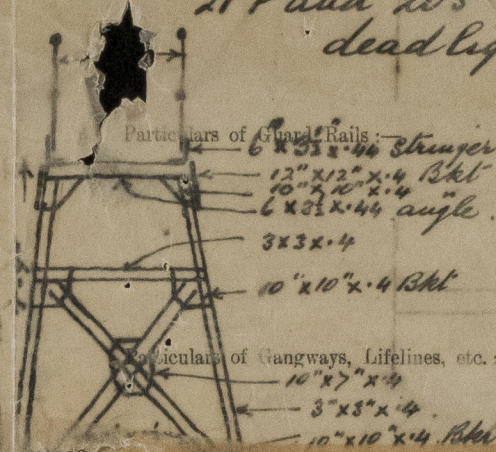 dead
Particulars of Guard Rails :—
6" x 3½" x .44 Stringer
12" x 12" x .4 Bkt
10" x 10" x .4
6 x 3½ x .44 angle.
3 x 3 x .4
10" x 10" x .4 Bkt
Particulars of Gangways, Lifelines, etc. :
10" x 7" x .4
3" x 3" x .4.
10" x 10" x .4 Bkt